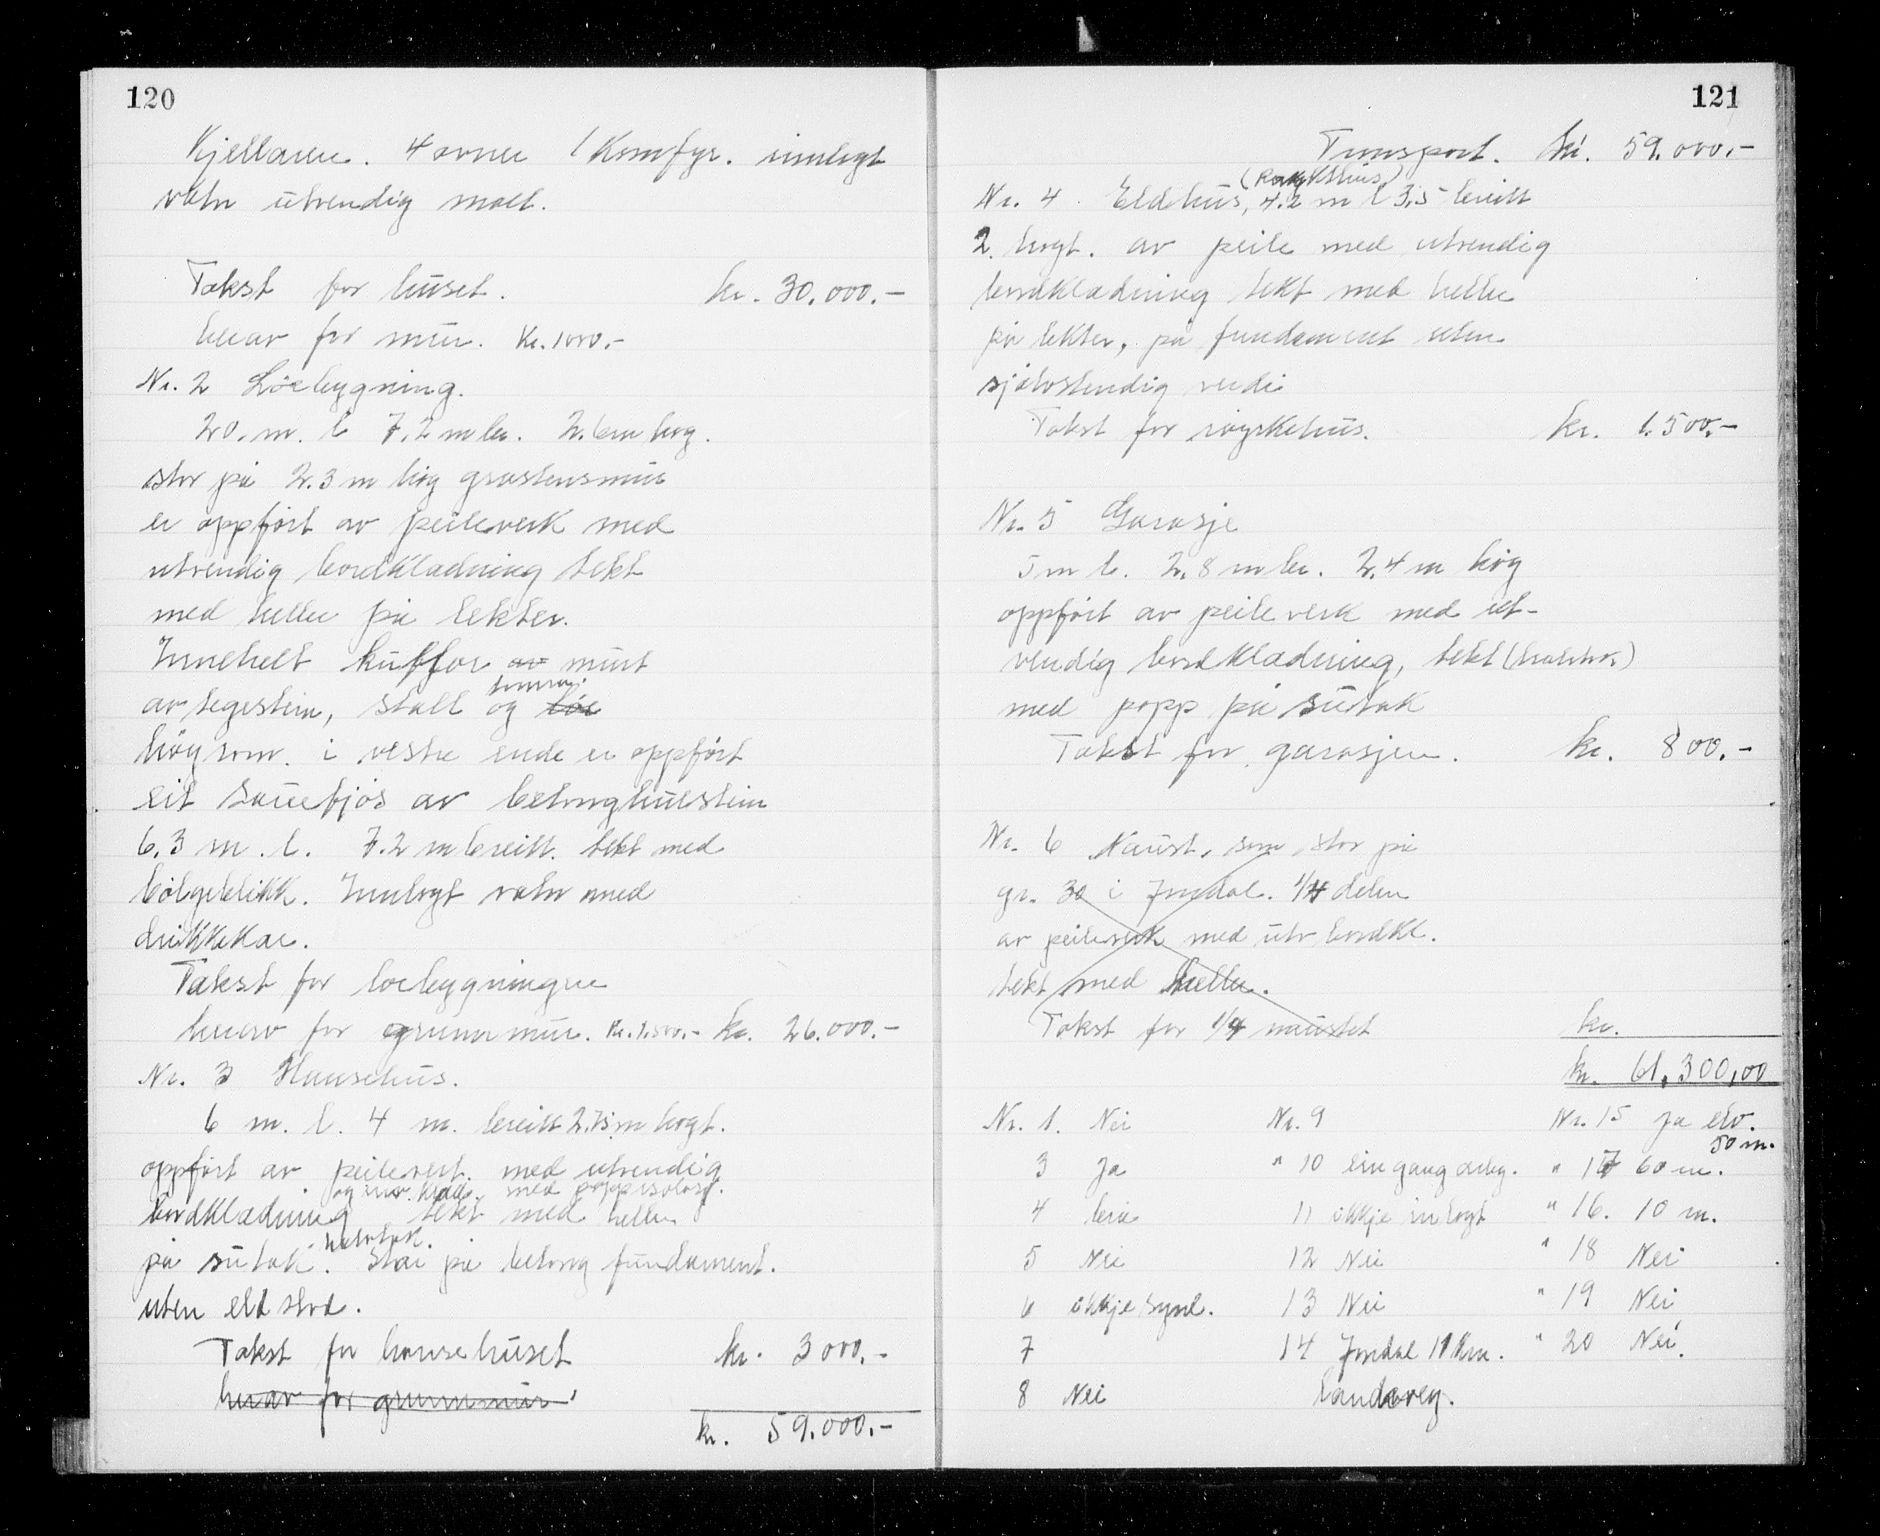 120
Kjellaren. 4 ovner 1 Komfyr. innlagt
vatn utvendig malt.
Takst for huset. kr. 30.000.-
herav for mur. Kr. 1000.-
Nr. 2 Löebygning.
20. m. l 7.2 m br. 2.6 m høg.
står på 2.3 m høg gråsteinsmur
er oppført av peileverk med
utvendig bordkledning tekt
med heller på lekter.
Innehelt kufför av murt
av tegestein, stall og löe
høyrom. i vestre ende er oppført
eit sauefjös av betonghulstein
6.3 m. l. 7.2 m breitt. tekt med
bölgeblikk. Innlagt vatn med
drikkekar.
Takst for löebygningen
herav for grunnmur. Kr. 1.500.- kr. 26.000.-
Nr. 3 Hansehus.
6 m. l. 4 m. breitt 2.75 m høgt.
oppført av peileverk. med utvendig
og inv. kled. med pappisolasj.
bordkledning tekt med heller
på sutak. Står på betong fundament.
uten eldsted.
Takst for hansehuset kr. 3000.-
herav for grunnmur
kr. 59.000.-
121
Transport. kr. 59.000.-
(Røykhus)
Nr. 4. Eldhus, 4.2 m l 3.5 breitt
2. høgt. av peile med utvendig
bordkledning tekt med heller
på lekter, på fundament uten
sjølvstendig verdi
Takst for røykehus. kr. 1.500.-
Nr. 5 Garasje
5 m l. 2.8 m br. 2.4 m høg
oppført av peileverk med ut-
vendig bordkledning, tekt
med papp på sutak
Takst for garasjen. kr. 800.-
Nr. 6 Naust, som står på
gr. 30 i Jondal. 1/4 delen
av peileverk med utv bordkl.
tekt med heller.
Takst for 1/4 naustet kr.
kr. 61.300,00
Nr. 1. Nei Nr. 9 Nr. 15 Ja elv.
50 m.
3 Ja " 10 ein gang arleg. " 17 60 m.
4 bra 11 ikkje inlagt " 16. 10 m.
5 Nei 12 Nei " 18 Nei
6 ikkje synl. 13 Nei " 19 Nei
7 14 Jondal 11 km. " 20 Nei.
8 Nei landeveg.